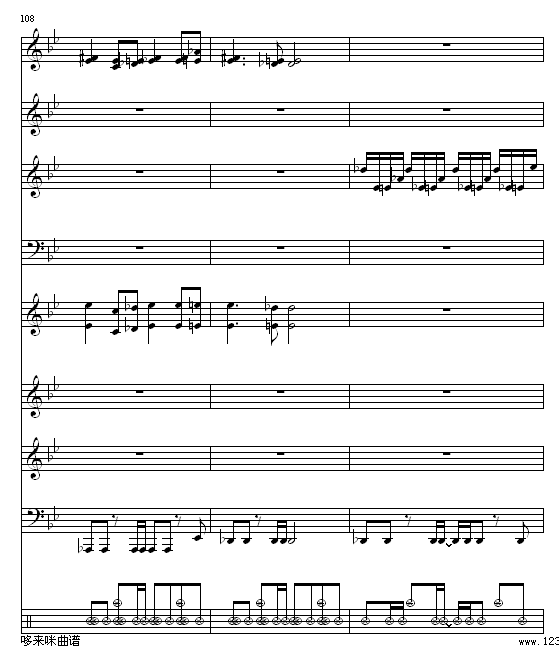 108
哆来咪曲谱
www.123